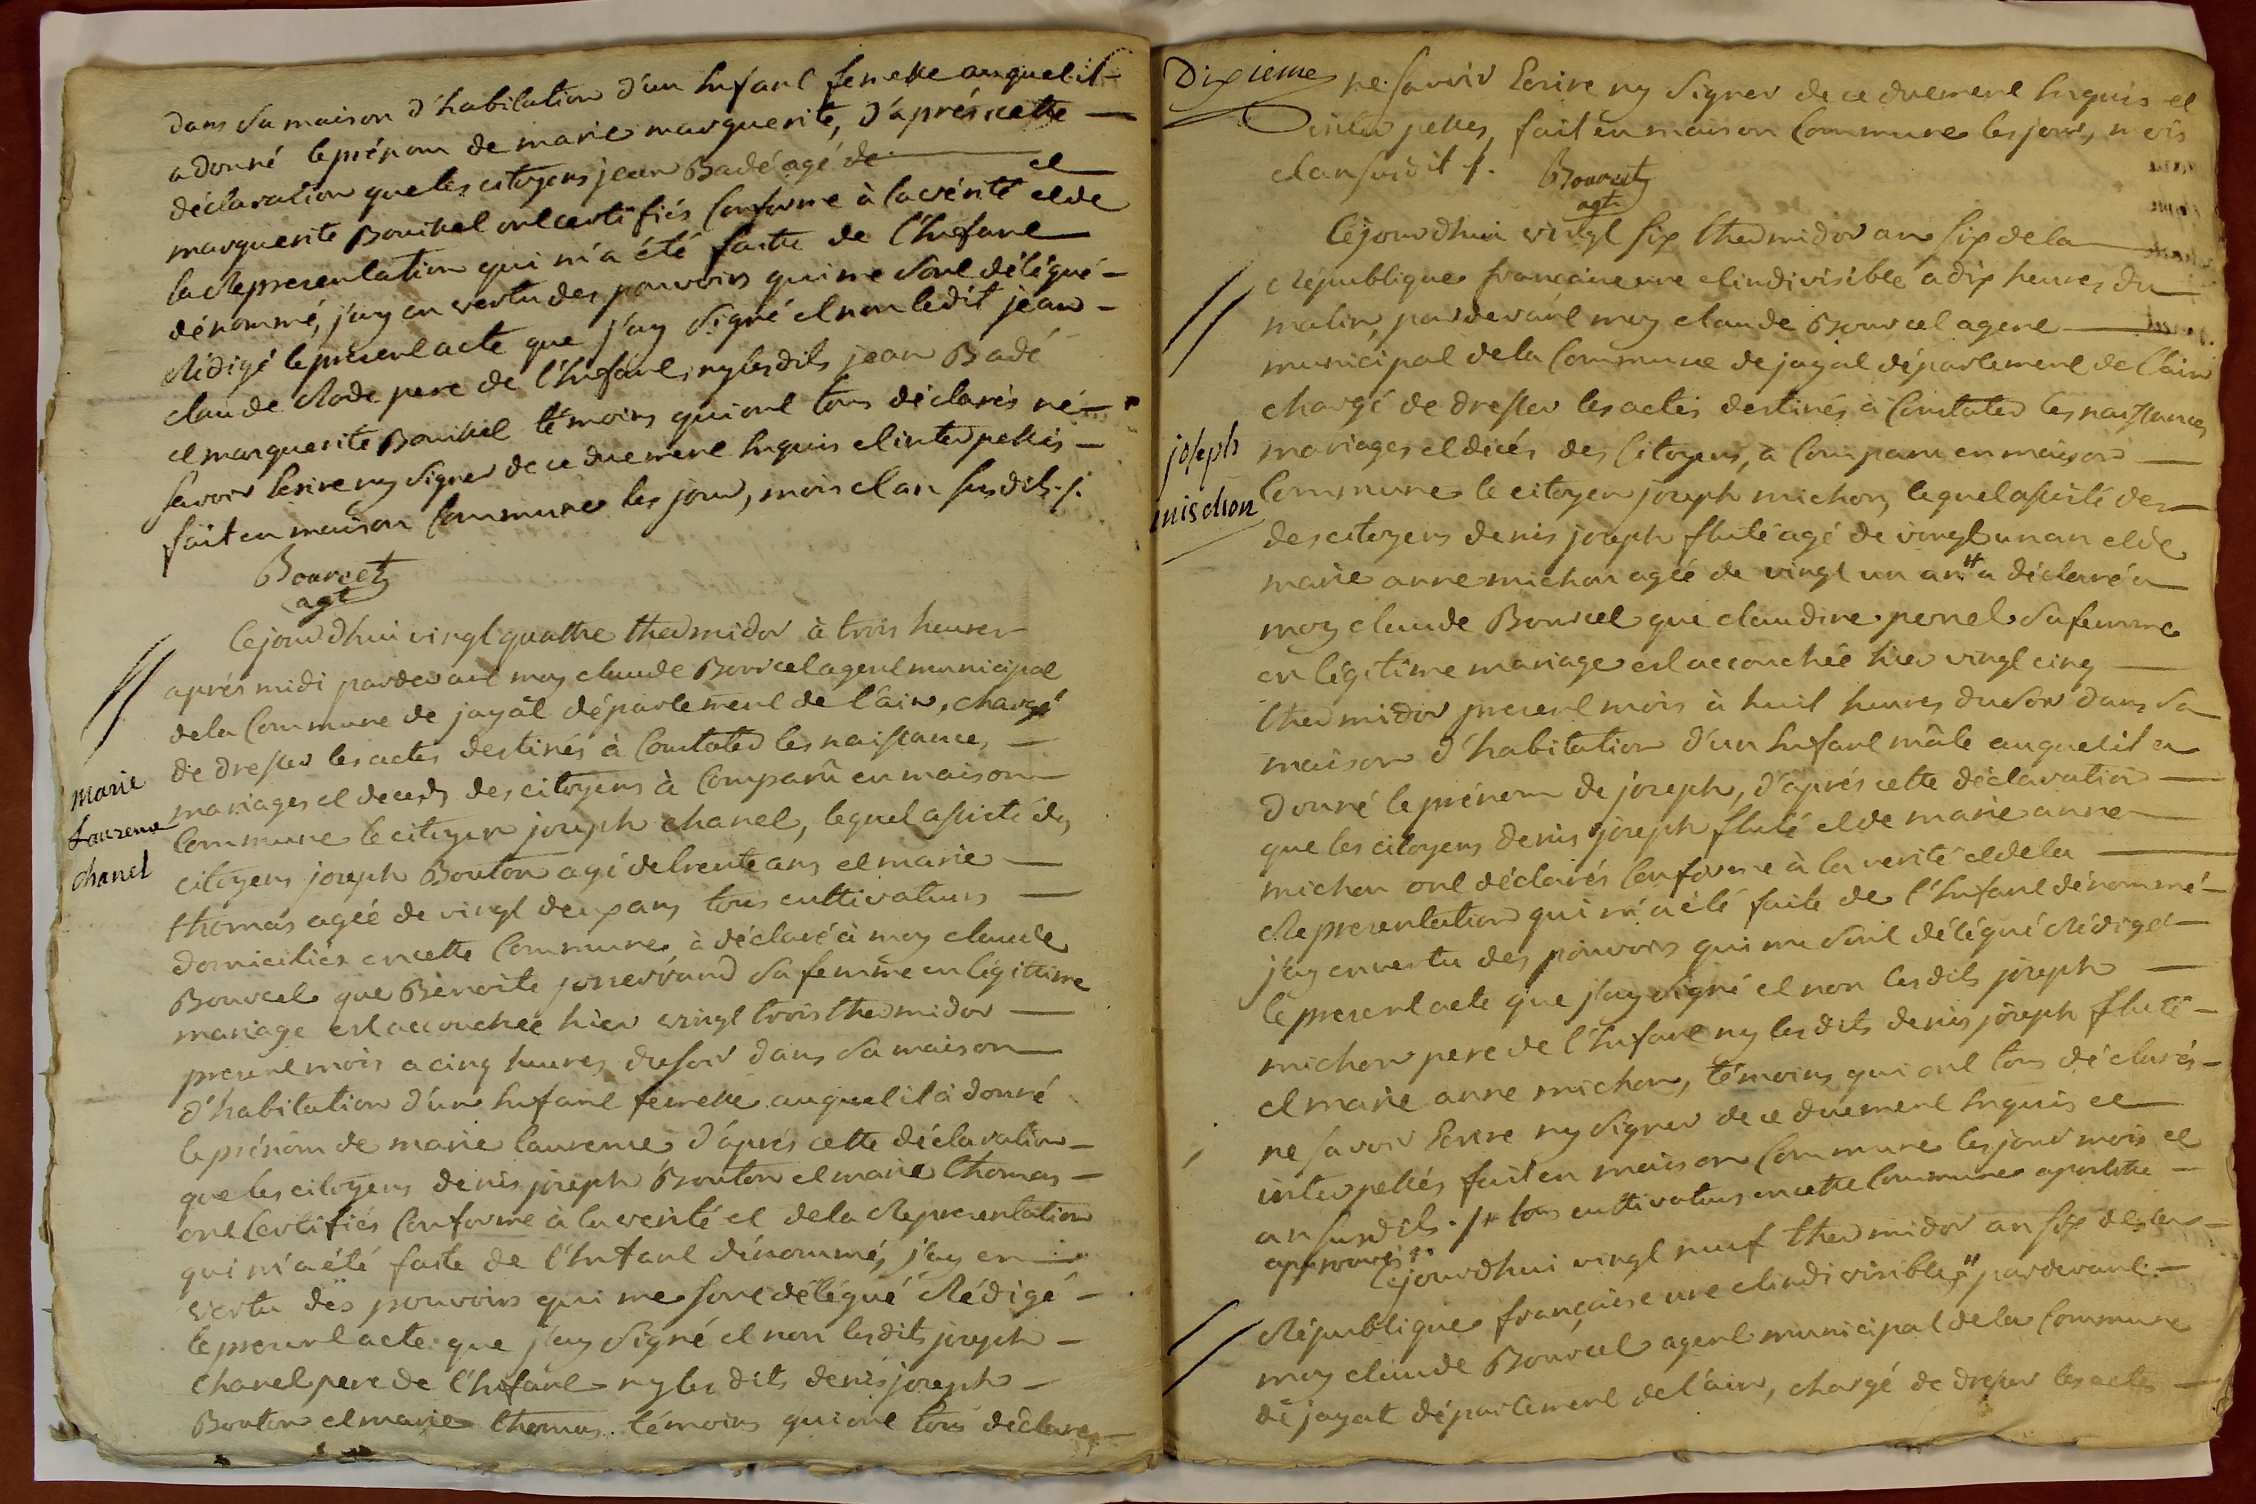 dans sa maison d'habitation d'un Enfant femelle auquel il
a donné le prénom de marie marguerite, d'après cette
déclaration que les citoyens jean Badé agé de et
marguerite Bouihel ont certifiés Conforme à la vérité et de
la Representation qui m'a été faitte de l'Enfant
dénommé, j'ay en vertu des pouvoirs qui me sont délégué
Rédigé le present acte que j'ay signé et non ledit jean
claude Rode pere de l'Enfant, ny lesdits jean Badé
et marguerite Bouihel témoins qui ont tous déclarés ne
savoir Ecrire ny signer de ce duement Enquis et interpellés
fait en maison Commune les jour, mois et an susdits ./.
Bourcet
agt
Cejourdhui vingt quattre thermidor à trois heures
après midi pardevant moy claude Bourcet agent municipal
de la Commune de jayat département de l'ain, chargé
de dresser les actes destinés à Constater les naissances,
mariages et deceds des citoyens à Comparû en maison
Commune le citoyen joseph chanel, lequel assisté des
citoyens joseph Bouton agé de trente ans et marie
thomas agée de vingt deux ans tous cultivateurs
domiciliés en cette Commune à déclaré à moy claude
Bourcet que Benoite josserrand sa femme en légittime
mariage est accouchée hier vingt trois thermidor
present mois a cinq heures du soir dans sa maison
d'habitation d'un Enfant femelle auquel il à donné
le prénom de marie laurence d'après cette déclaration
que les citoyens denis joseph Bouton et marie thomas
ont Certifiés Conforme à la verité et de la Representation
qui m'a été faite de l'Enfant dénommé, j'ay en
vertu des pouvoirs qui me sont délégué Rédigé
le present acte que j'ay signé et non lesdits joseph
Chanel pere de l'Enfant ny les dits denis joseph
Bouton et marie thomas témoins qui ont tous déclarés
marie
Laurence
chanel
Dixieme
ne savoir Ecrire ny signer de ce duement Enquis et
interpellés, fait en maison Commune les jour, mois
et an susdit ./. Bourcet
agt
Cejourdhui vingt six thermidor an six de la
République française une et indivisible à dix heures du
matin, pardevant moy claude Bourcet agent
municipal de la Commune de jayat département de l'ain
chargé de dresser les actes destinés à Constater les naissances
mariages et décés des Citoyens, a Comparu en maison
Commune le citoyen joseph michon, lequel assisté des
des citoyens denis joseph fluté agé de vingt un an et de
marie anne michon agée de vingt un an # a déclaré a
moy claude Bourcet que claudine perret sa femme
en légitime mariage est accouchée hier vingt cinq
thermidor present mois à huit heures du soir dans sa
maison d'habitation d'un Enfant mâle auquel il a
donné le prénom de joseph, d'après cette déclaration
que les citoyens denis joseph fluté et de marie anne
michon ont déclarés Conforme à la verité et de la
Representation qui m'a été faite de l'Enfant dénommé
j'ay en vertu des pouvoirs qui me sont délégué Rédigé
le present acte que j'ay signé et non lesdits joseph
michon pere de l'Enfant ny lesdits denis joseph fluté
et marie anne michon, témoins qui ont tous déclarés
ne savoir Ecrire ny signer de ce duement Enquis et
interpellés fait en maison Commune les jour mois et
an susdits ./. # tous cultivateurs en cette Commune apostille
approuvée
Cejourdhui vingt neuf thermidor an six de la
République française une et indivisible, # pardevant
moy claude Bourcet agent municipal de la Commune
de jayat département de l'ain, chargé de dresser les actes
joseph
mischon